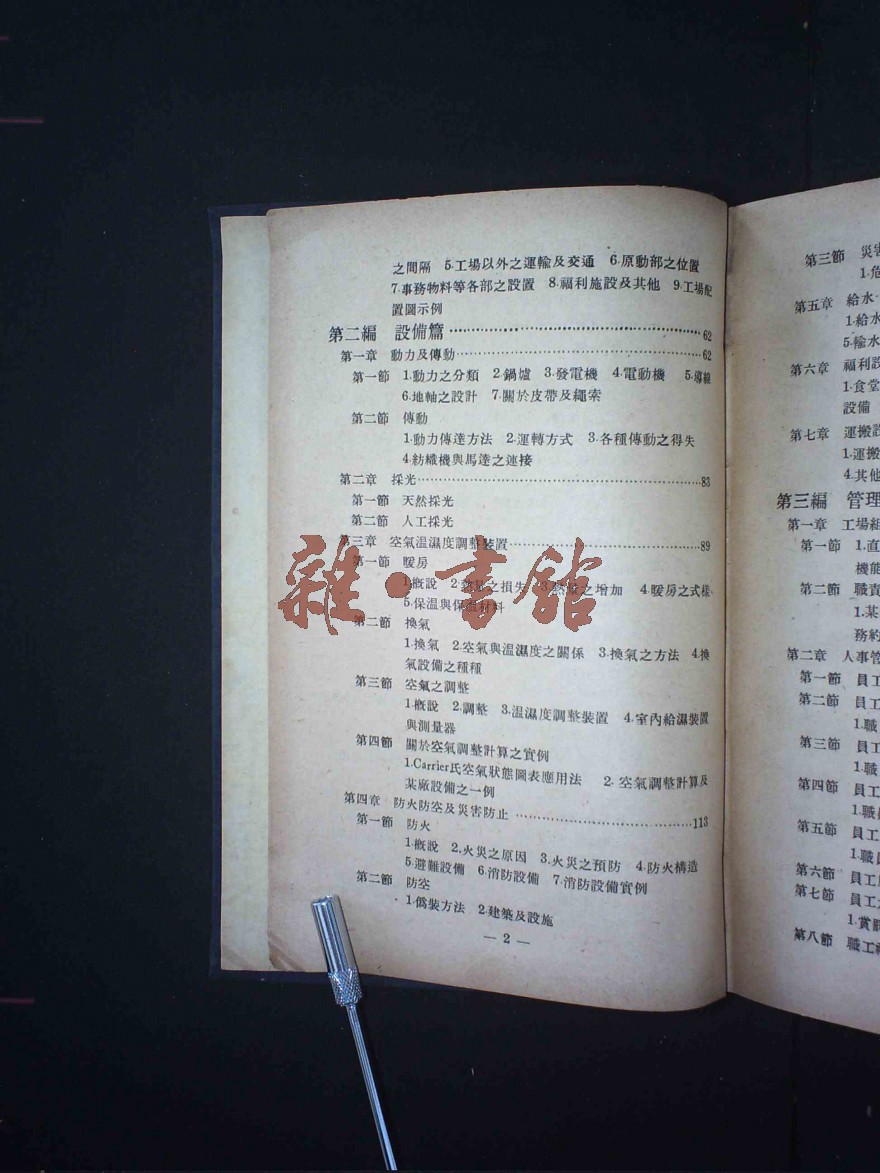 之間隔 5.工場以外之運輸及交通 6.原動部之位置
7.事務物料等各部之設置 8.福利施設及其他 9.工場配
置圖示例
第二編 設備篇 62
第一章 動力及傳動 62
第一節 1.動力之分類 2.鍋爐 3.發電機 4.電動機 5.導線
6.地軸之設計 7.關於皮帶及繩索
第二節 傳動
1.動力傳達方法 2.運轉方式 3.各種傳動之得失
4.紡織機與馬達之連接
第二章 採光 83
第一節 天然採光
第二節 人工採光
第三章 空氣温濕度調整裝置 89
第一節 暖房
1.概說 2.熱量之損失 3.熱度之增加 4.暖房之式樣
5.保温與保温材料
第二節 換氣
1.換氣 2.空氣與温濕度之關係 3.換氣之方法 4.換
氣設備之種種
第三節 空氣之調整
1.概說 2.調整 3.温濕度調整裝置 4.室內給濕裝置
與測量器
第四節 關於空氣調整計算之實例
1.Carrier氏空氣狀態圖表應用法 2.空氣調整計算及
某廠設備之一例
第四章 防火防空及災害防止 113
第一節 防火
1.概說 2.火災之原因 3.火災之預防 4.防火構造
5.避難設備 6.消防設備 7.消防設備實例
第二節 防空
1.僞裝方法 2.建築及設施
— 2 —
雜·書館
第三節 災害
1.危
第五章 給水
1.給水
5.輸水
第六章 福利設
1.食堂
設備
第七章 運搬設
1.運搬
4.其他
第三編 管理
第一章 工場組
第一節 1.直
機能
第二節 職責
1.某
務約
第二章 人事管
第一節 員工
第二節 員工
1.職
第三節 員工
1.職
第四節 員工
1.職
第五節 員工
1.職
第六節 員工
第七節 員工
1.賞
第八節 職工